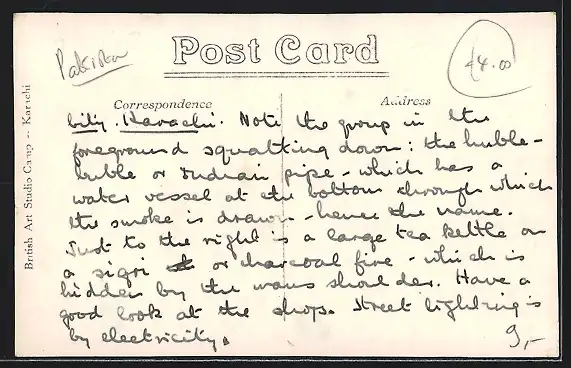 Pakistan
Post Card
£4.00
Correspondence
Address
British Art Studio Camp -- Karachi
Karachi. Note the group in the
foreground squatting down: the hubble-
bubble or Indian pipe - which has a
water vessel at the bottom through which
the smoke is drawn - hence the name.
Just to the right is a large tea kettle on
a sigri or charcoal fire - which is
hidden by the mans shoulder. Have a
good look at the shop. Street lighting is
by electricity.
9,-